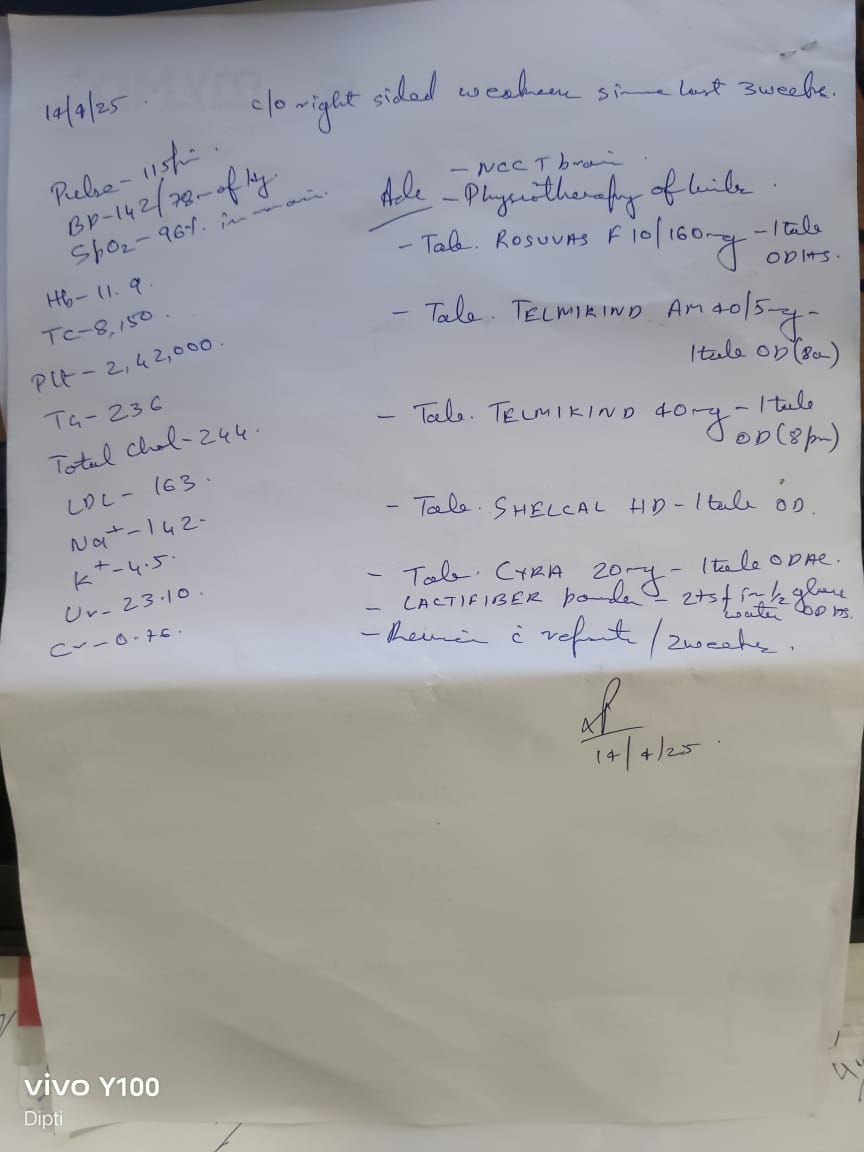 14/4/25. c/o right sided weakness since last 3 weeks.
Pulse - 115/min.
BP - 142/78 mm of Hg.
SpO2 - 96% in room air.
Hb - 11.9.
TC - 8,150.
Plt - 2,42,000.
TG - 236
Total Chol - 244.
LDL - 163.
Na+ - 142.
K+ - 4.5.
Ur - 23.10.
Cr - 0.76.
Adv - NCCT brain.
- Physiotherapy of limbs.
- Tab. ROSUVAS F 10/160mg - 1 tab
OD HS.
- Tab. TELMIKIND AM 40/5mg -
1 tab OD (8am)
- Tab. TELMIKIND 40mg - 1 tab
OD (8pm)
- Tab. SHELCAL HD - 1 tab OD.
- Tab. CYRA 20mg - 1 tab OD AC.
- LACTIFIBER powder - 2 tsf in 1/2 glass
water OD HS.
- Review c̄ reports / 2 weeks.
14/4/25.
vivo Y100
Dipti